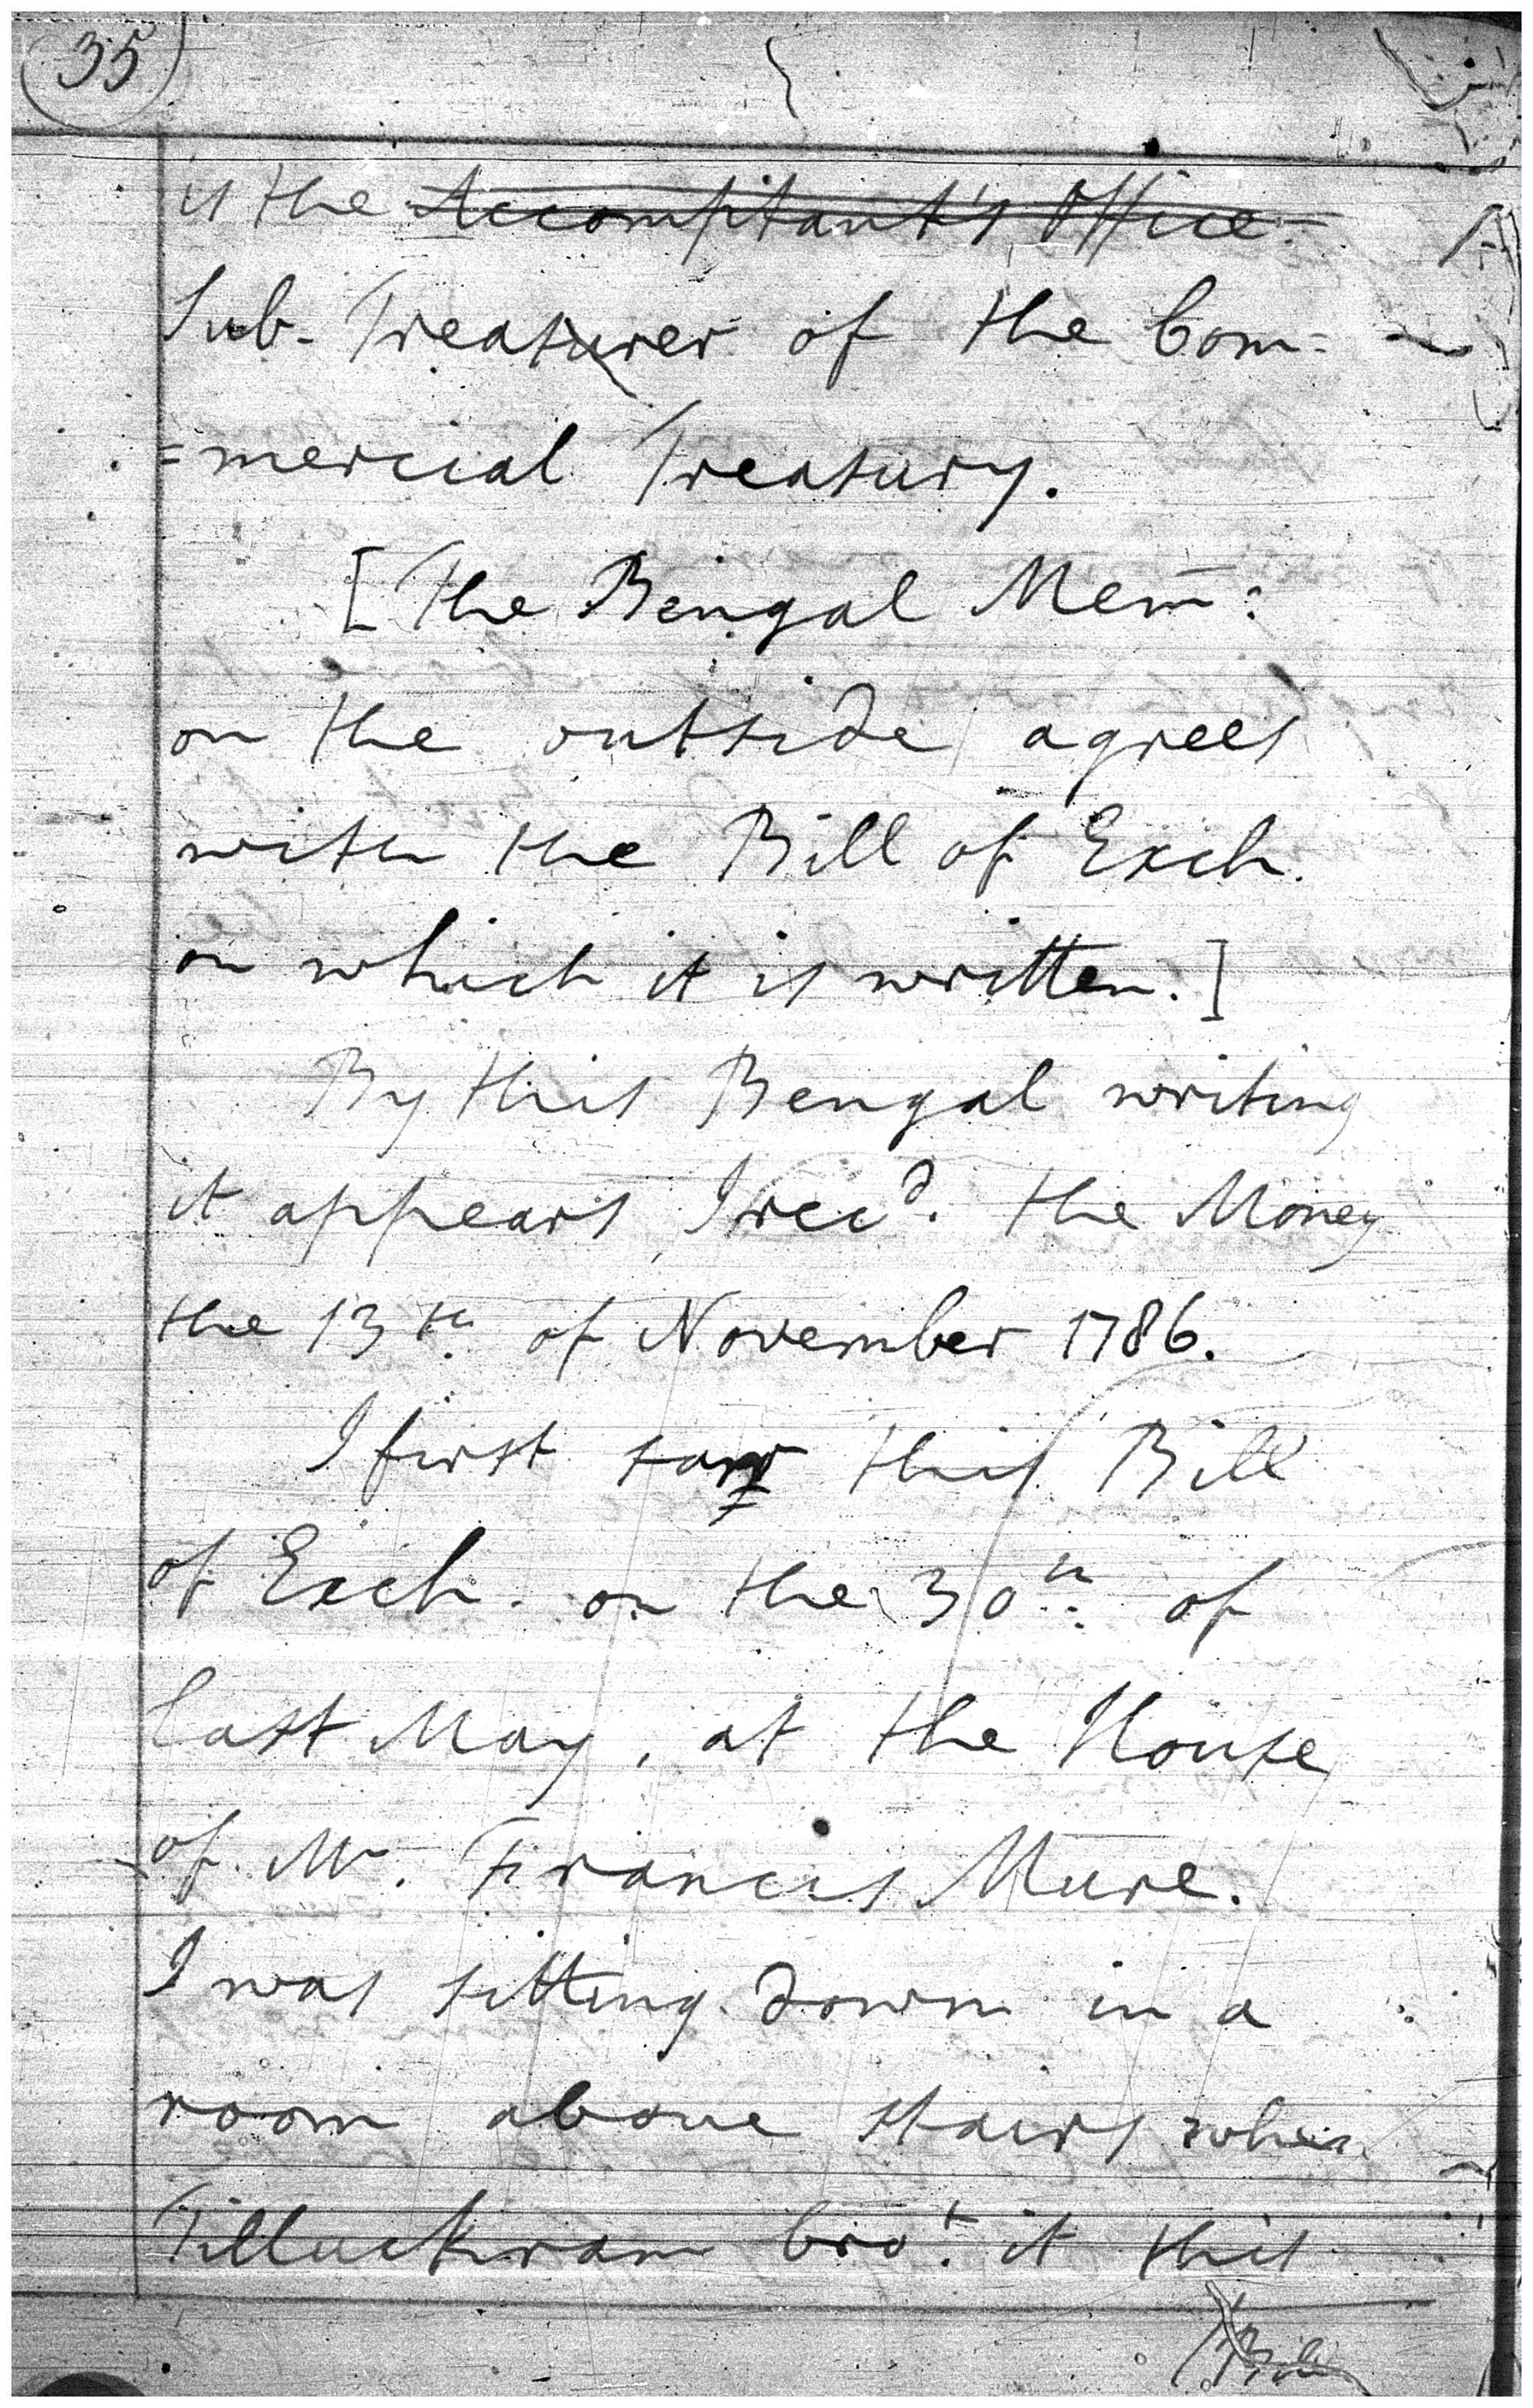 35
is the Accomptant's Office
Sub-Treasurer of the Com=
=mercial Treasury.
[The Bengal Mem:
on the outside agrees
with the Bill of Exch.
on which it is written.]
By this Bengal writing
it appears I rec.d the Money
the 13th. of November 1786.
I first saw this Bill
of Exch. on the 30th: of
last May, at the House
of Mr. Francis Mure.
I was sitting down in a
room above stairs when
Tilluckram bro.t it this